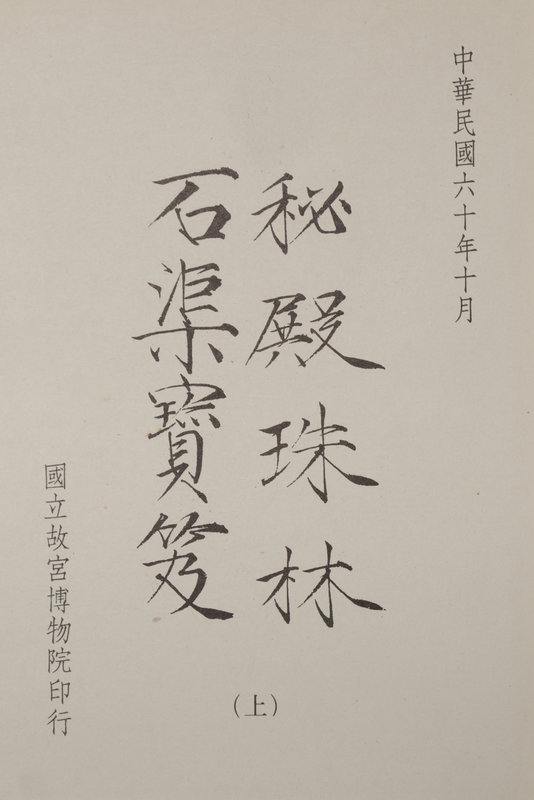 中華民國六十年十月
秘殿珠林
石渠寶笈
(上)
國立故宮博物院印行